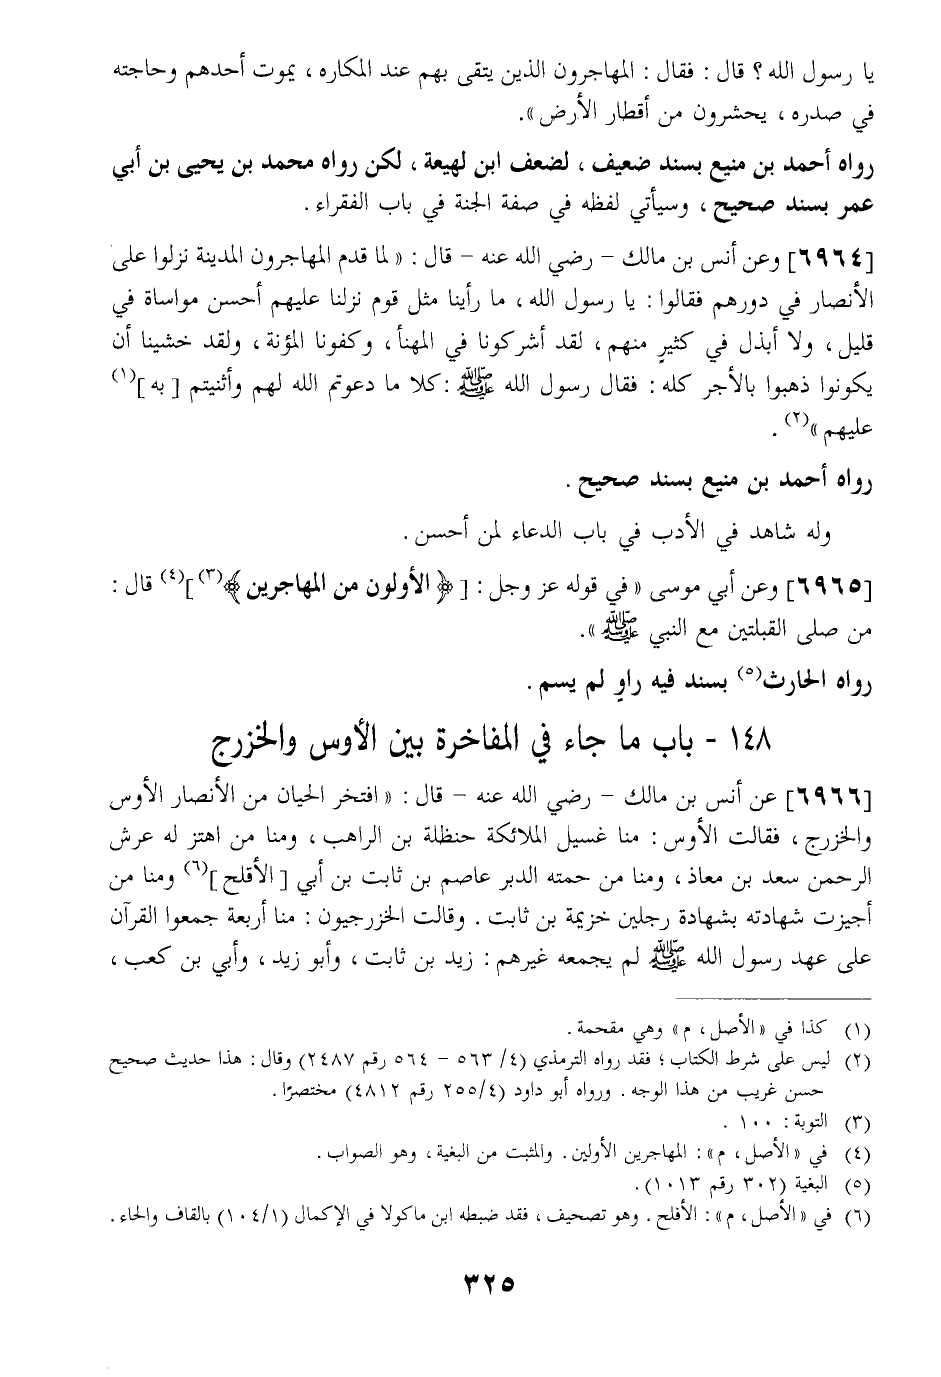 يا رسول الله؟ قال: فقال: المهاجرون الذين يتقى بهم عند المكاره، يموت أحدهم وحاجته
في صدره، يحشرون من أقطار الأرض».
رواه أحمد بن منيع بسند ضعيف، لضعف ابن لهيعة، لكن رواه محمد بن يحيى بن أبي
عمر بسند صحيح، وسيأتي لفظه في صفة الجنة في باب الفقراء.
[٦٩٦٤] وعن أنس بن مالك - رضي الله عنه - قال: «لما قدم المهاجرون المدينة نزلوا على
الأنصار في دورهم فقالوا: يا رسول الله، ما رأينا مثل قوم نزلنا عليهم أحسن مواساة في
قليل، ولا أبذل في كثيرٍ منهم، لقد أشركونا في المهنأ، وكفونا المؤنة، ولقد خشينا أن
يكونوا ذهبوا بالأجر كله: فقال رسول الله ﷺ: كلا ما دعوتم الله لهم وأثنيتم [به](١)
عليهم»(٢).
رواه أحمد بن منيع بسند صحيح.
وله شاهد في الأدب في باب الدعاء لمن أحسن.
[٦٩٦٥] وعن أبي موسى «في قوله عز وجل: [﴿الأولون من المهاجرين﴾(٣)](٤) قال:
من صلى القبلتين مع النبي ﷺ».
رواه الحارث(٥) بسند فيه راوٍ لم يسم.
١٤٨ - باب ما جاء في المفاخرة بين الأوس والخزرج
[٦٩٦٦] عن أنس بن مالك - رضي الله عنه - قال: «افتخر الحيان من الأنصار الأوس
والخزرج، فقالت الأوس: منا غسيل الملائكة حنظلة بن الراهب، ومنا من اهتز له عرش
الرحمن سعد بن معاذ، ومنا من حمته الدبر عاصم بن ثابت بن أبي [الأقلح](٦) ومنا من
أجيزت شهادته بشهادة رجلين خزيمة بن ثابت. وقالت الخزرجيون: منا أربعة جمعوا القرآن
على عهد رسول الله ﷺ لم يجمعه غيرهم: زيد بن ثابت، وأبو زيد، وأبي بن كعب،
(١) كذا في «الأصل، م» وهي مقحمة.
(٢) ليس على شرط الكتاب؛ فقد رواه الترمذي (٤/ ٥٦٣ - ٥٦٤ رقم ٢٤٨٧) وقال: هذا حديث صحيح
حسن غريب من هذا الوجه. ورواه أبو داود (٤/٢٥٥ رقم ٤٨١٢) مختصرًا.
(٣) التوبة: ١٠٠.
(٤) في «الأصل، م»: المهاجرين الأولين. والمثبت من البغية، وهو الصواب.
(٥) البغية (٣٠٢ رقم ١٠١٣).
(٦) في «الأصل، م»: الأفلح. وهو تصحيف، فقد ضبطه ابن ماكولا في الإكمال (١/١٠٤) بالقاف والحاء.
٣٢٥